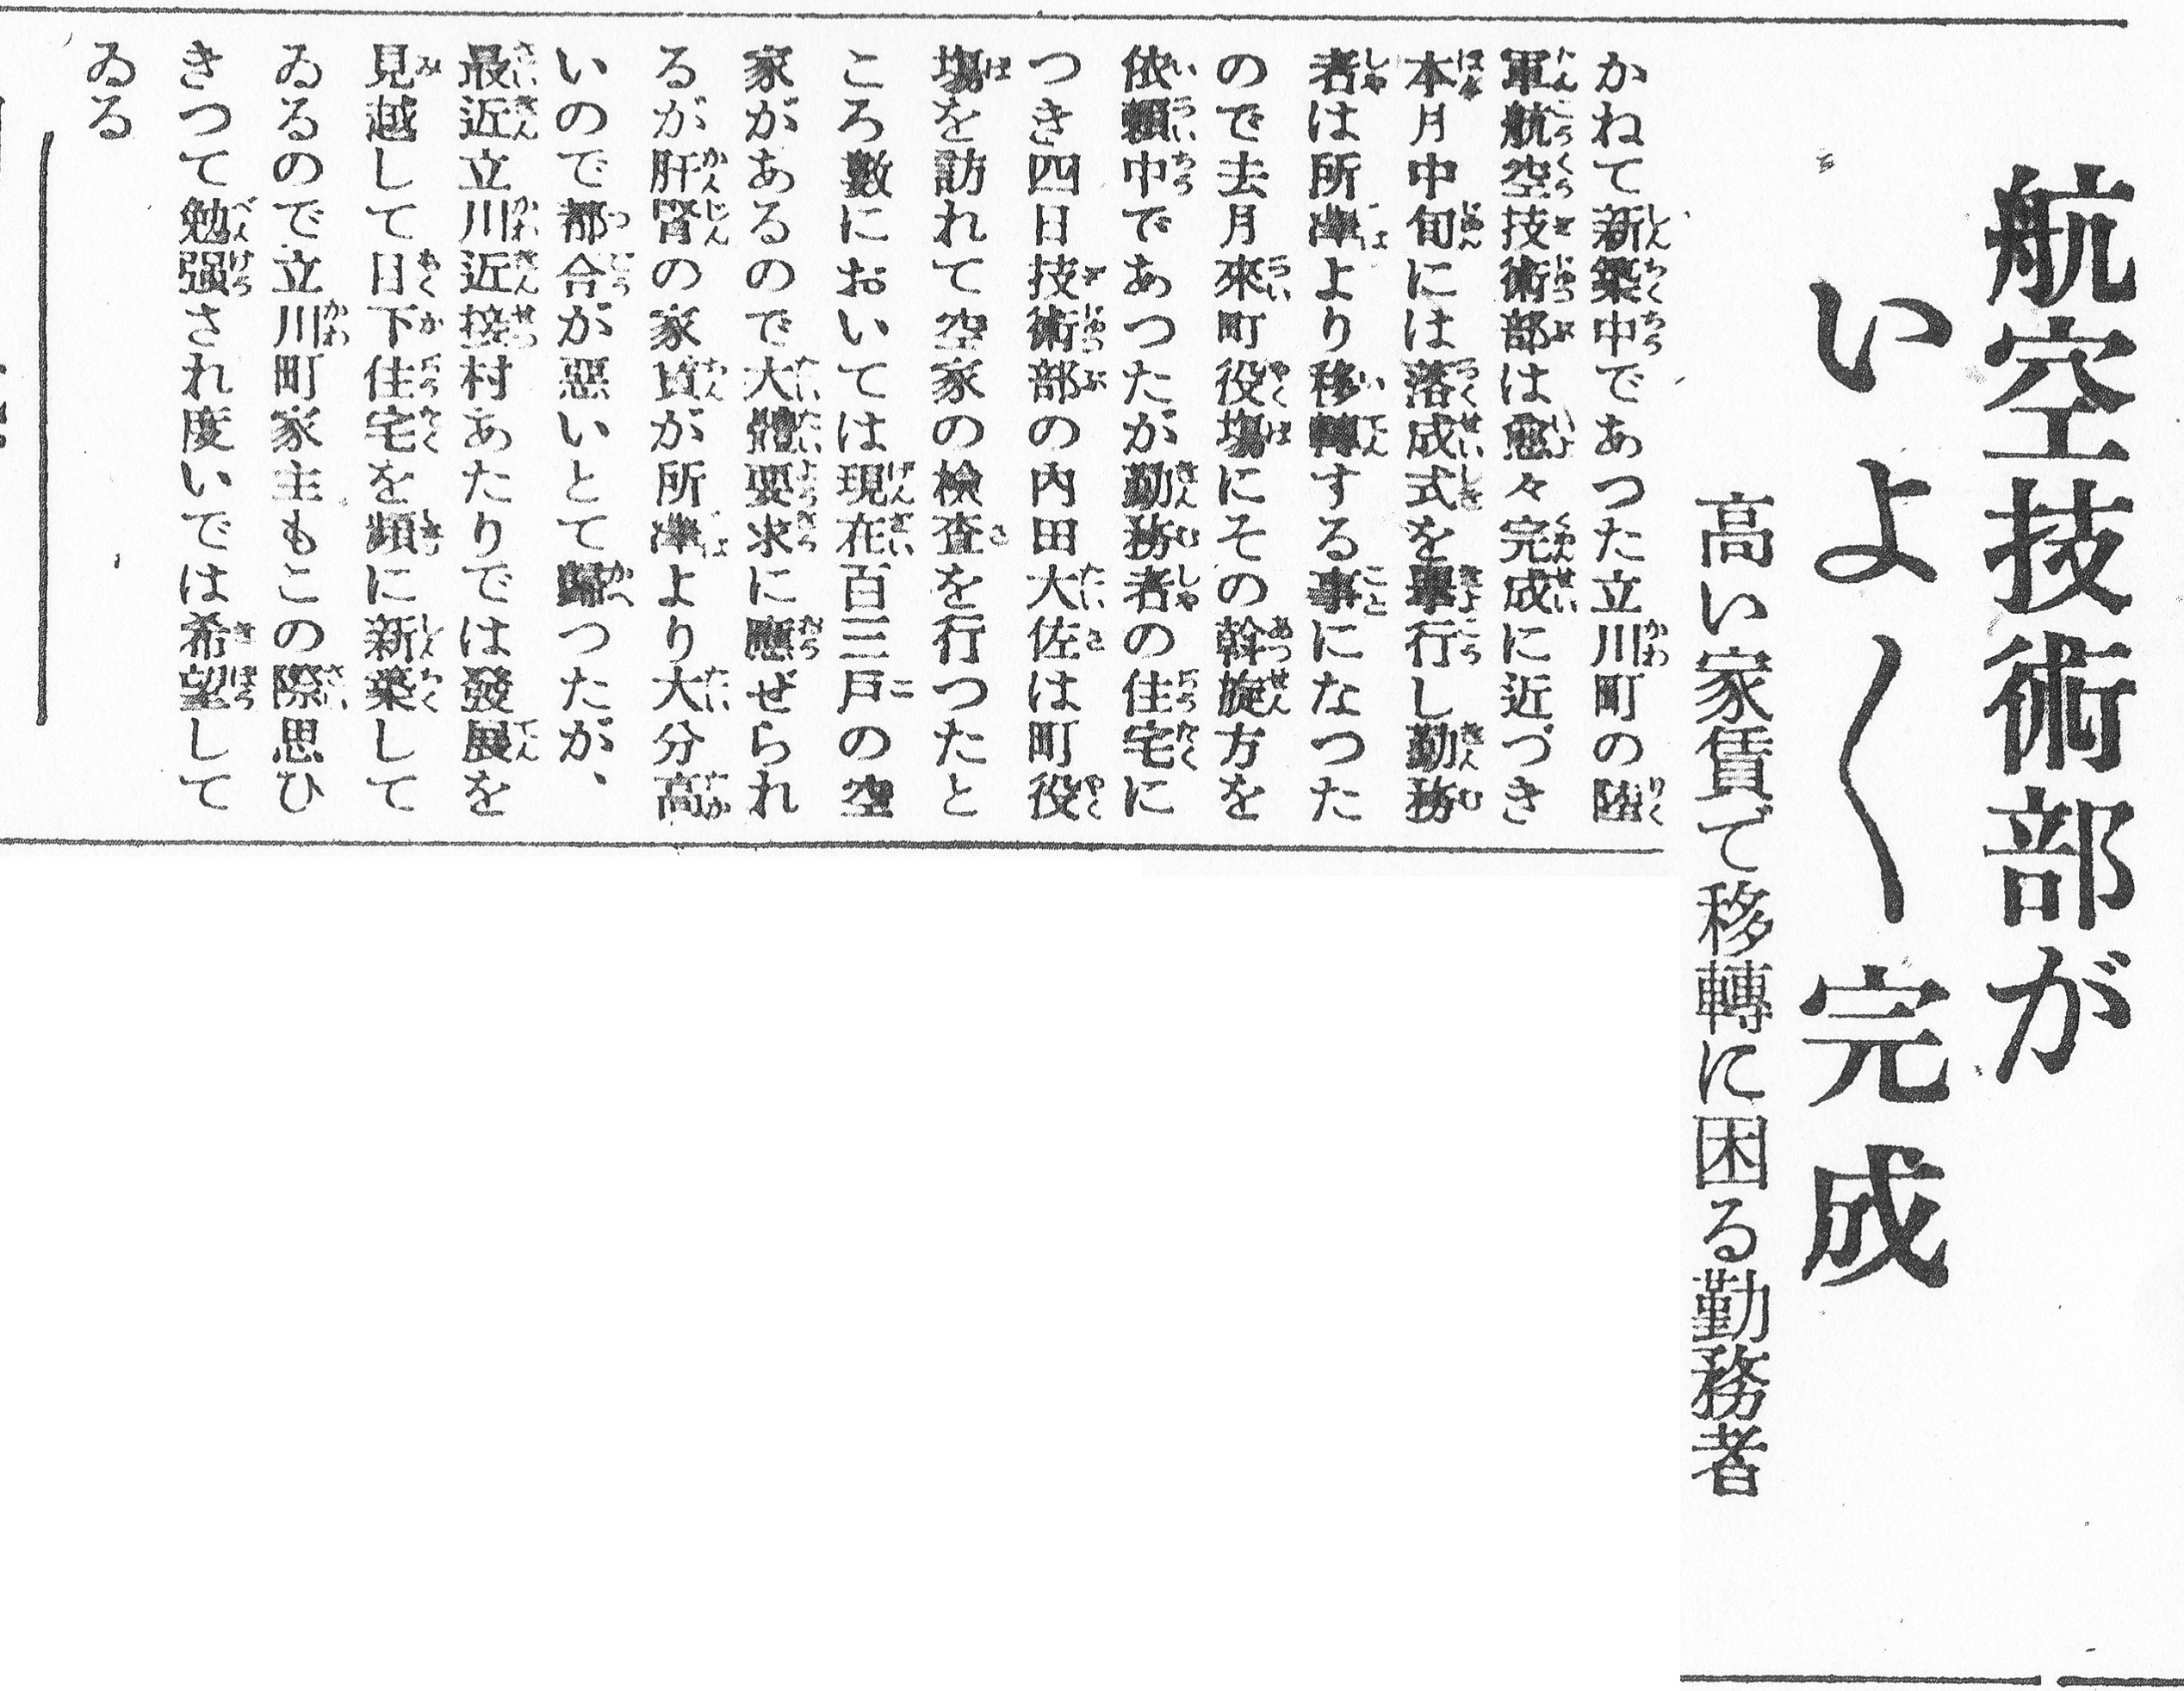 航空技術部が
いよ〱完成
高い家賃で移轉に困る勤務者
かねて新築中であつた立川町の陸
軍航空技術部は愈々完成に近づき
本月中旬には落成式を擧行し勤務
者は所澤より移轉する事になつた
ので去月來町役場にその斡旋方を
依頼中であつたが勤務者の住宅に
つき四日技術部の内田大佐は町役
場を訪れて空家の檢査を行つたと
ころ數においては現在百三戸の空
家があるので大體要求に應ぜられ
るが肝腎の家賃が所澤より大分高
いので都合が惡いとて歸つたが、
最近立川近接村あたりでは發展を
見越して日下住宅を頻に新築して
ゐるので立川町家主もこの際思ひ
きつて勉强され度いでは希望して
ゐる